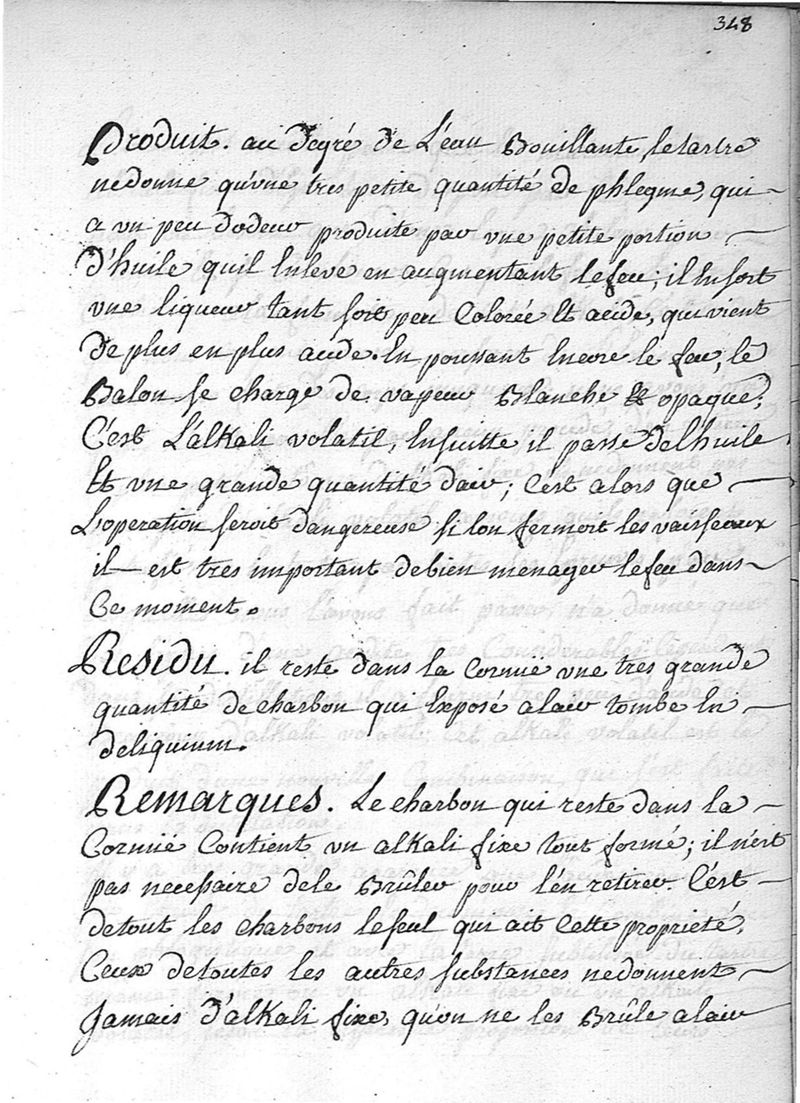 348
Produit. au degré de L'eau Bouillante, le tartre
ne donne qu'vne tres petite quantité de phlegme, qui
a vn peu dodeur produite par vne petite portion
d'huile quil Enleve en augmentant le feu; il En sort
vne liqueur tant soit peu Colorée Et acide, qui vient
de plus en plus acide. En poussant Encore le feu, le
Balon se charge de vapeur Blanche & opaque;
C'est L'alKali volatil, Ensuitte il passe del'huile
Et vne grande quantité dair; C'est alors que
L'operation seroit dangereuse si lon fermoit les vaisseaux
il est tres important de bien menager le feu dans
Ce moment.
Residu. il reste dans la Cornue vne tres grande
quantité de charbon qui Exposé a lair tombe En
deliquium.
Remarques. Le charbon qui reste dans la
Cornuë Contient vn alKali fixe tout formé; il n'est
pas necessaire de le Brûler pour l'en retirer. C'est
de tout les charbons le seul qui ait Cette proprieté,
Ceux de toutes les autres substances ne donnent
Jamais d'alKali fixe, qu'on ne les Brûle a lair